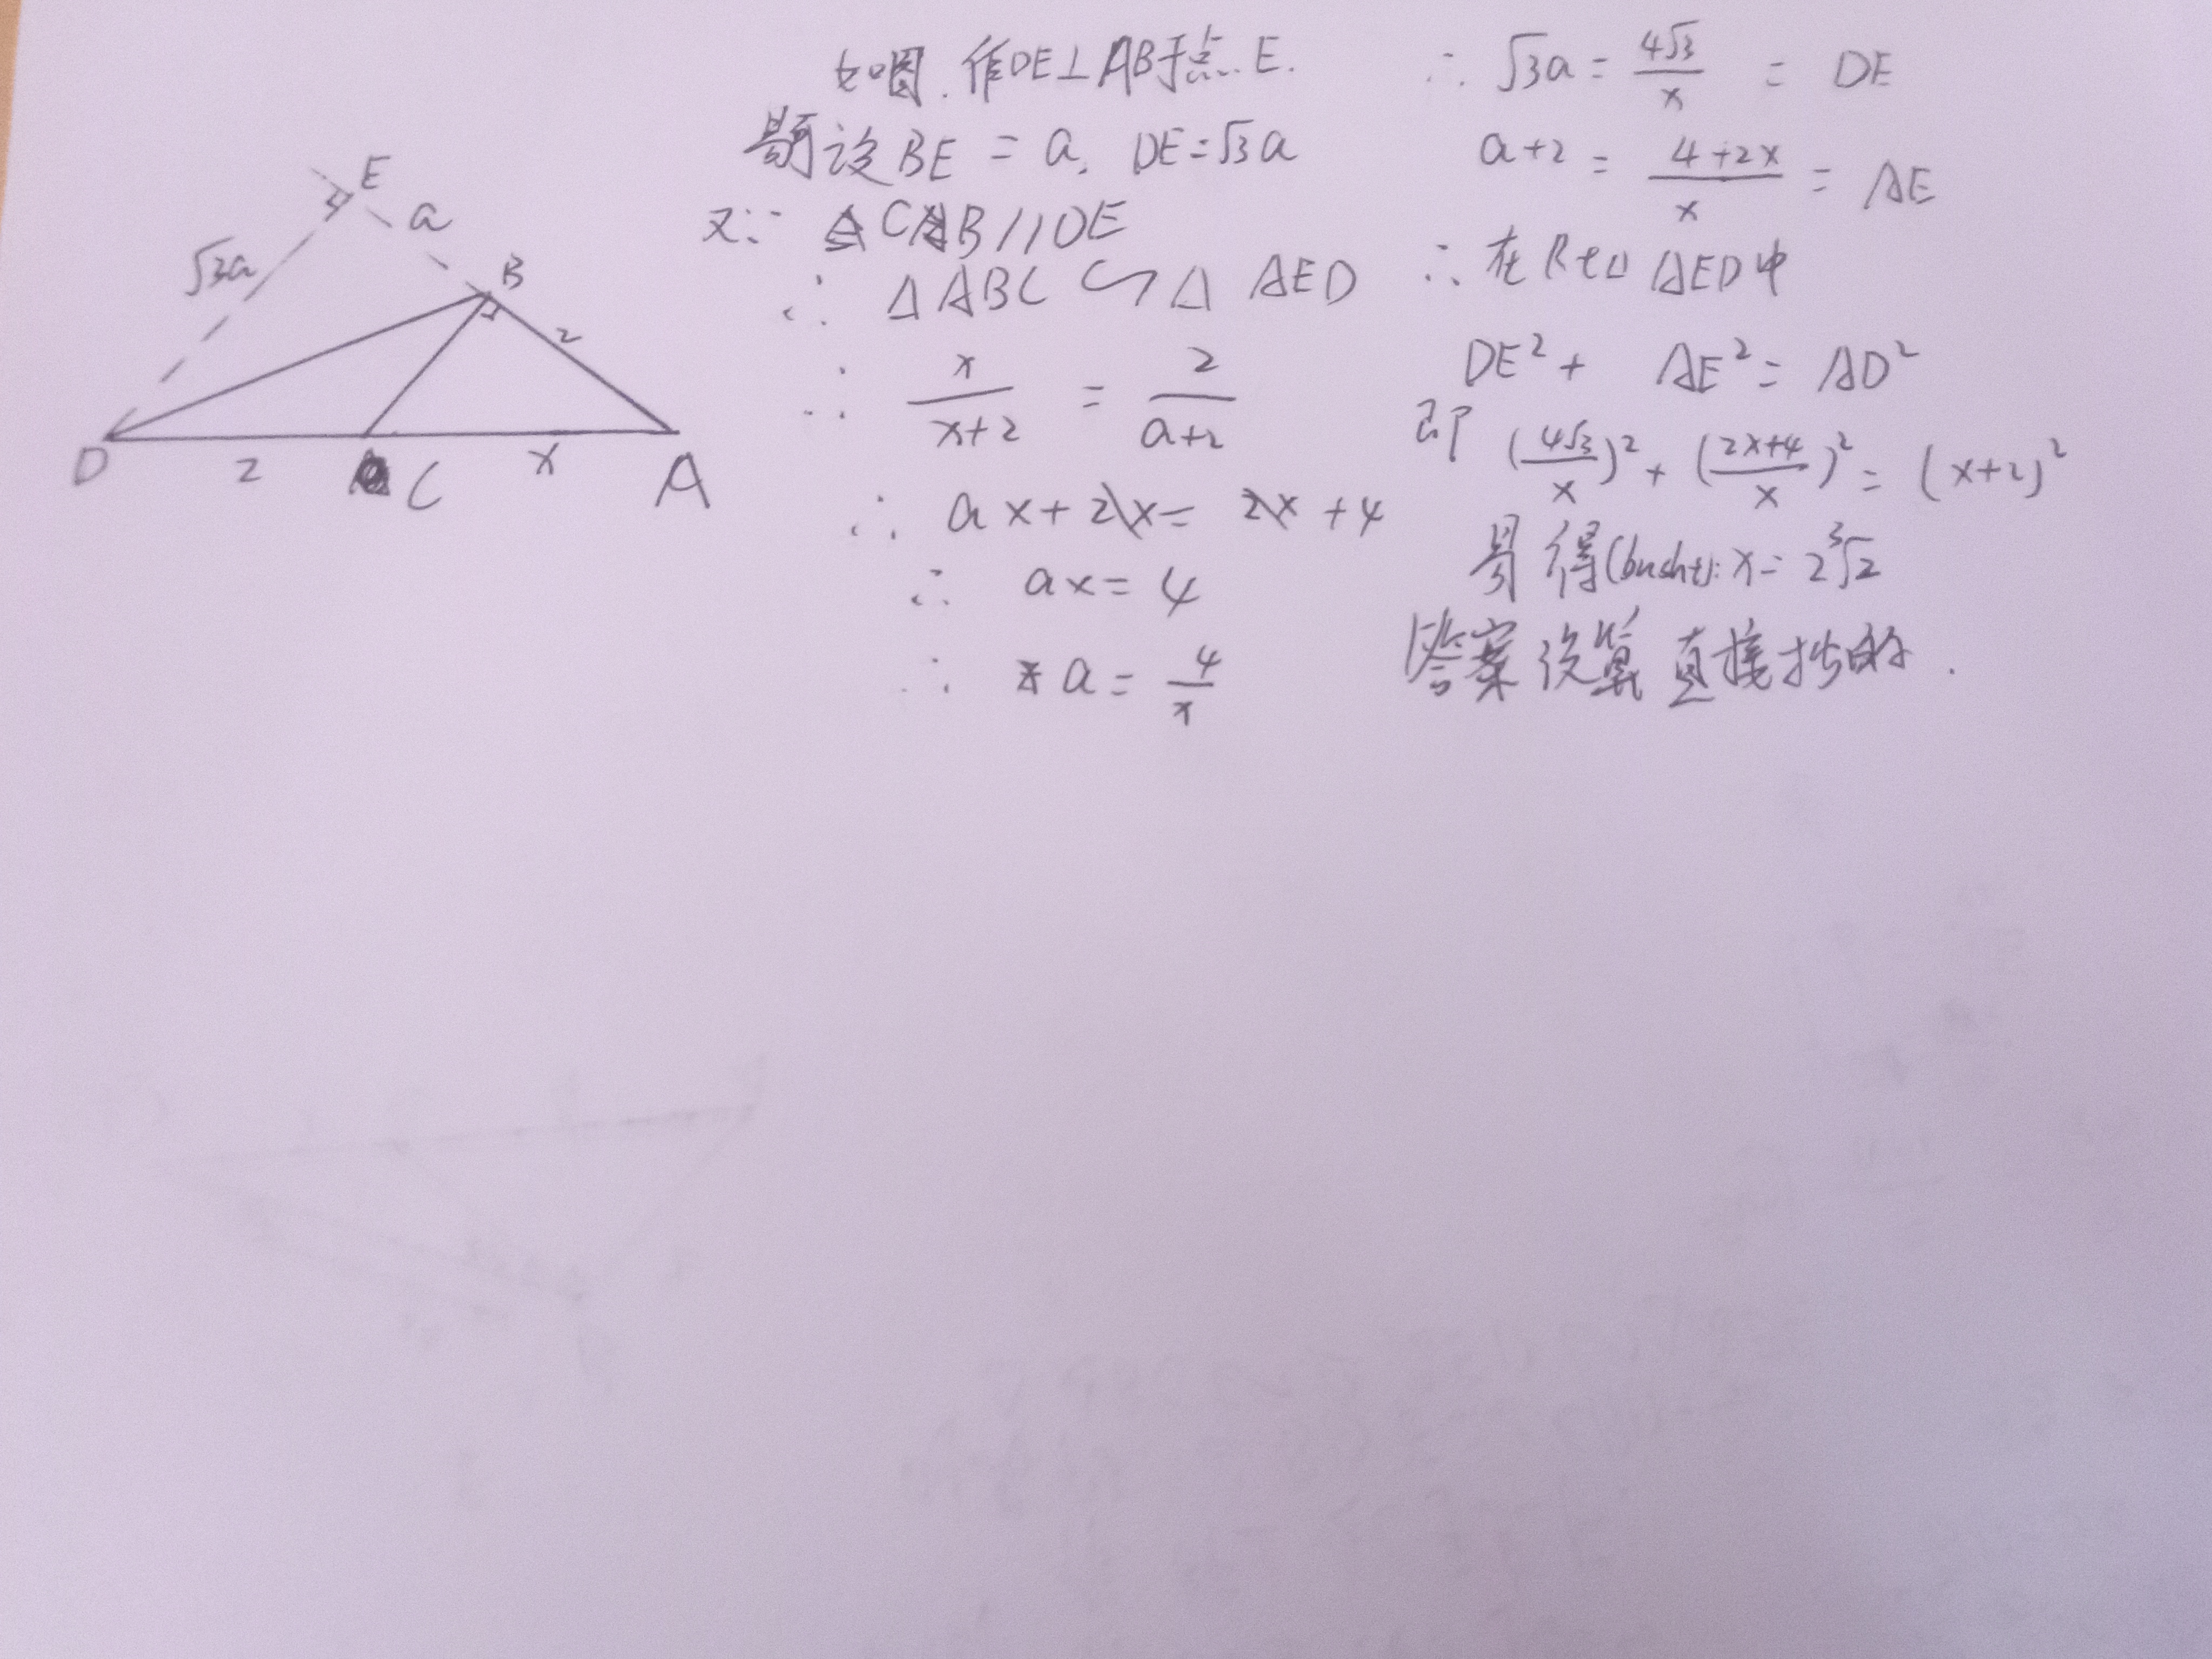 E
a
√3a
B
2
D
2
C
x
A
如图.作DE⊥AB于点E.
易设BE = a, DE=√3a
又∵ CB//DE
∴ △ABC ∽ △AED
∴ x/(x+2) = 2/(a+2)
∴ ax+2x= 2x+4
∴ ax= 4
∴ a= 4/x
∴ √3a= 4√3/x = DE
a+2 = (4+2x)/x = AE
∴在Rt△AED中
DE²+ AE²= AD²
即 (4√3/x)²+ (2x+4/x)²= (x+2)²
易得(bushi): x= 2³√2
答案没算直接抄的.